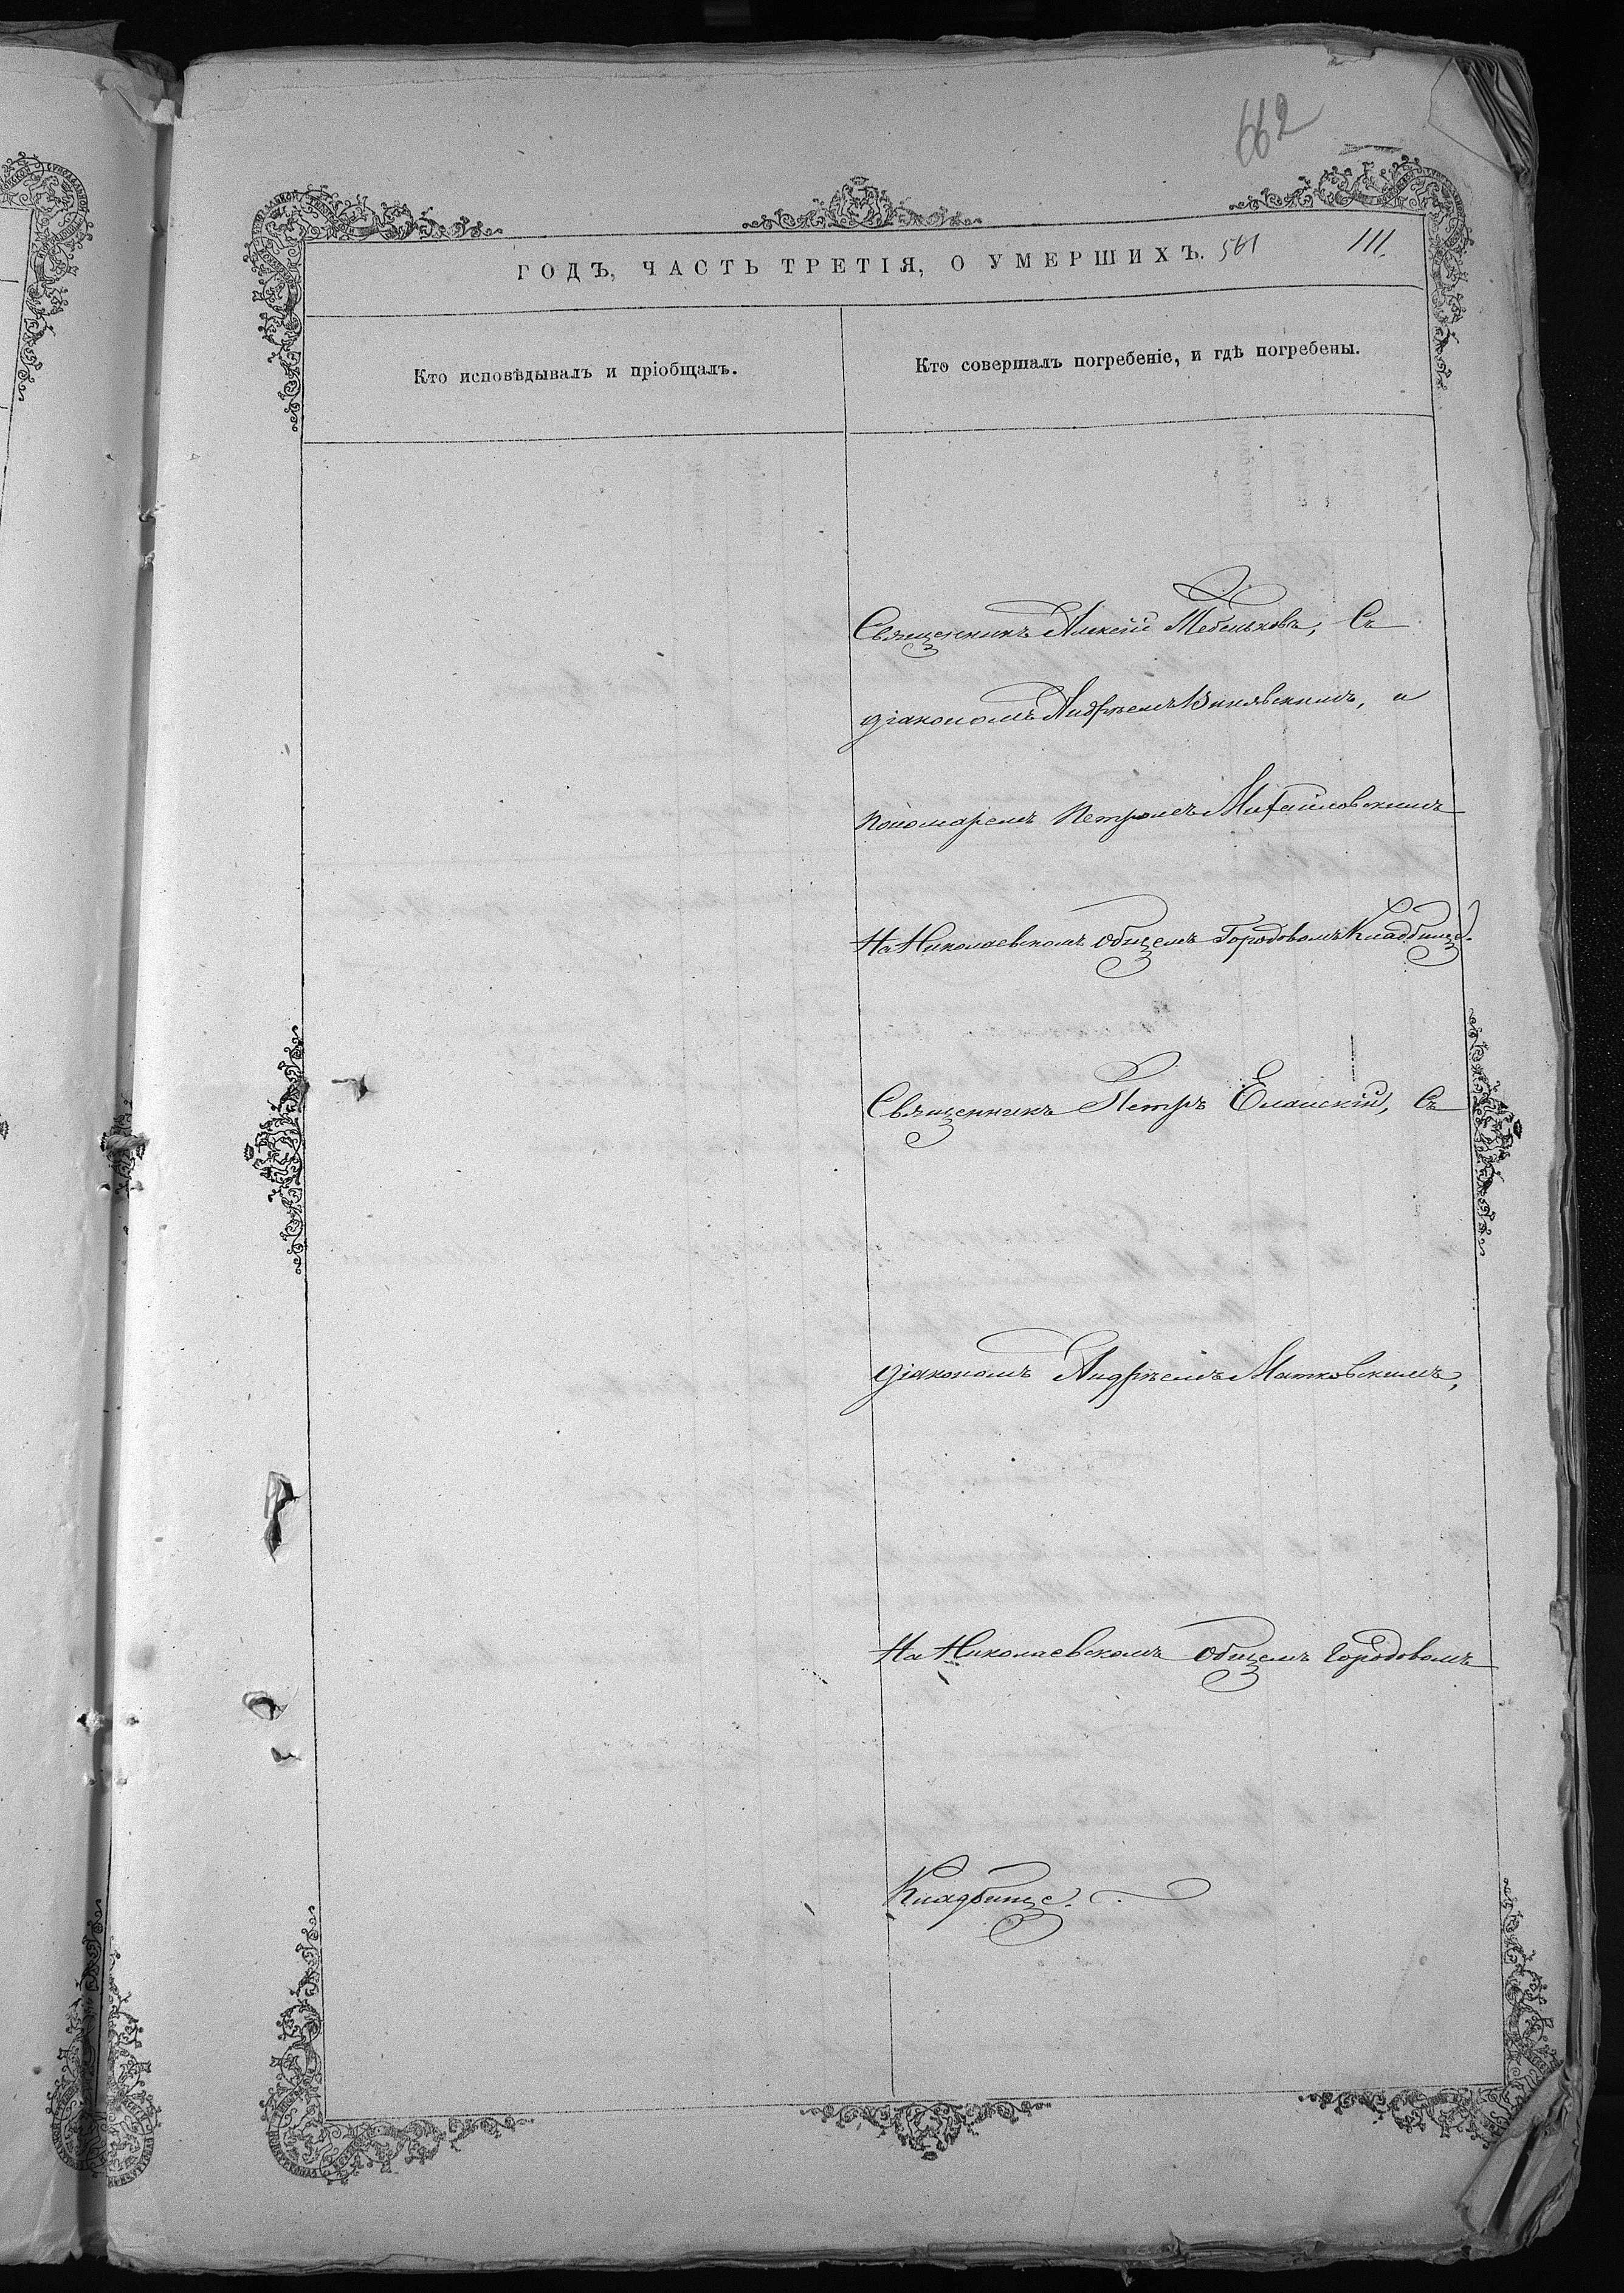 662
ГОДЪ, ЧАСТЬ ТРЕТІЯ, О УМЕРШИХЪ. 561 111.
Кто исповѣдывалъ и пріобщалъ.
Кто совершалъ погребеніе, и гдѣ погребены.
Священникъ Алексій Съ
діакономъ Андреемъ и
пономаремъ Петромъ Михайловскимъ
На Николаевскомъ Общемъ Городовомъ Кладбищѣ.
Священникъ Петръ Еланскій, Съ
діакономъ Андреемъ Матковскимъ,
На Николаевскомъ Общемъ Городовомъ
Кладбищѣ.